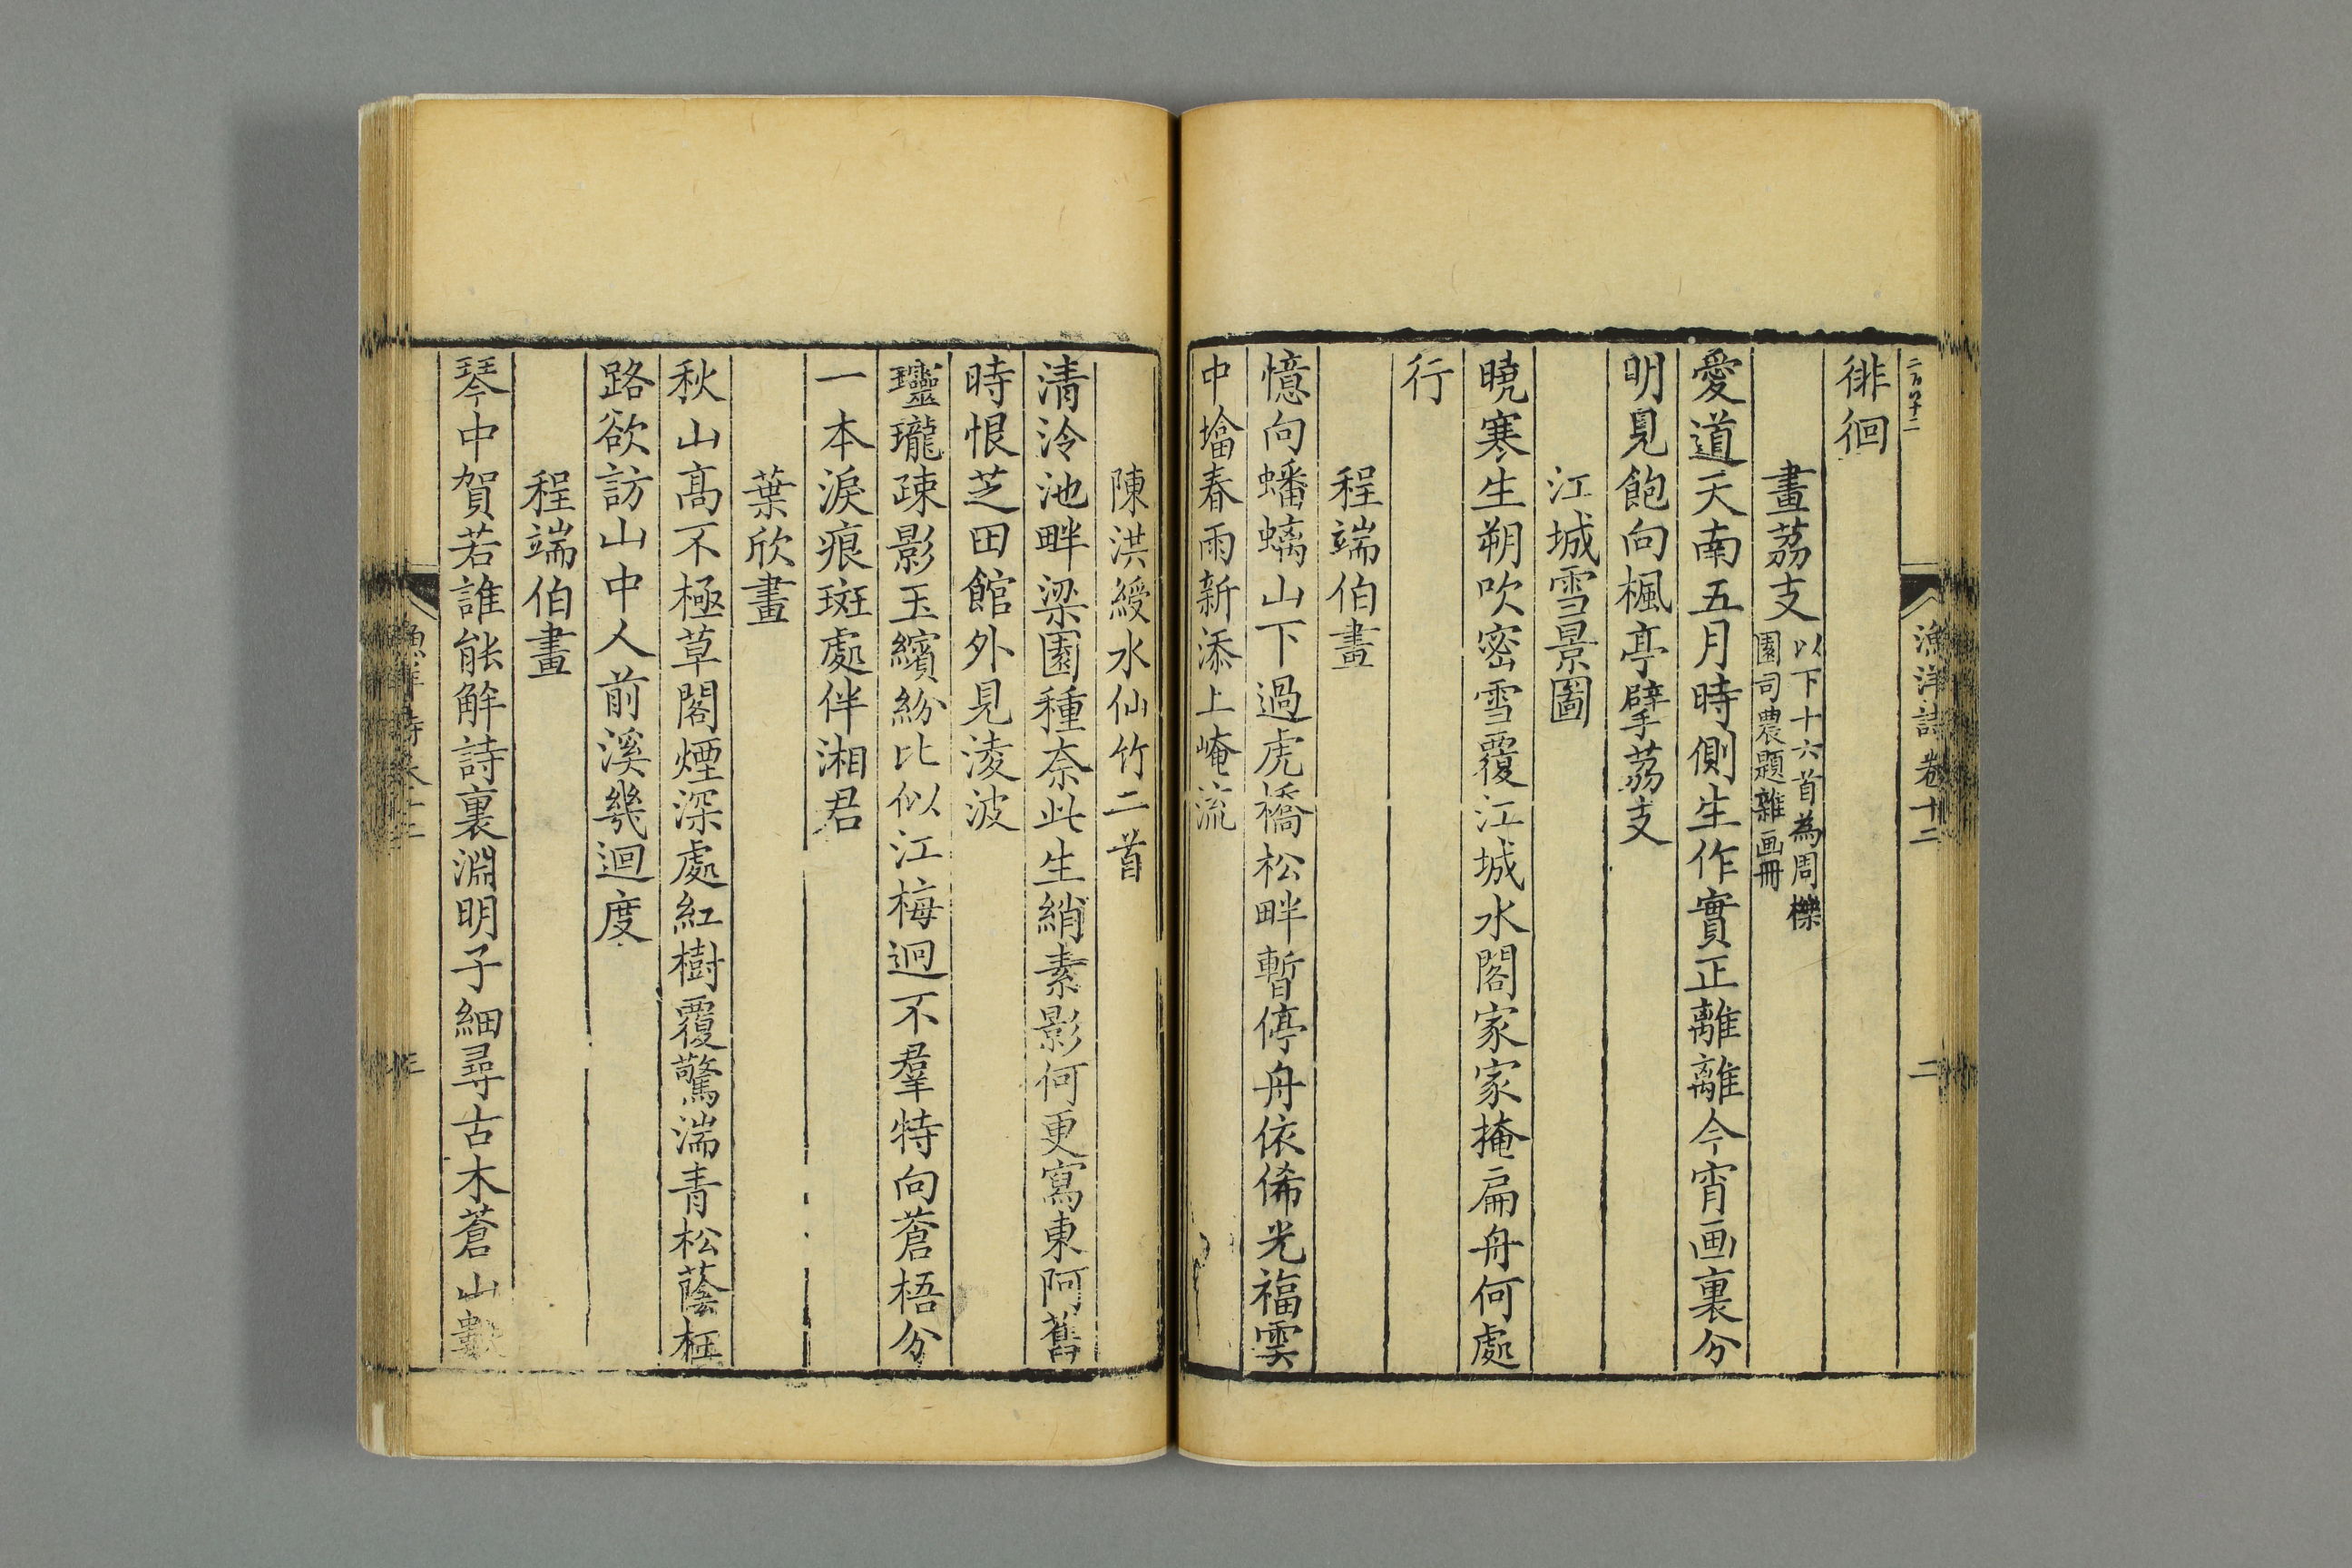 漁洋詩卷十二
二
徘徊
畫荔支以下十六首為周櫟
園司農題雜画冊
愛道天南五月時側生作實正離離今宵画裏分
明見飽向楓亭擘荔支
江城雪景圖
曉寒生朔吹密雪覆江城水閣家家掩扁舟何處
行
程端伯畫
憶向蟠螭山下過虎橋松畔暫停舟依俙光福雲
中墖春雨新添上崦流
陳洪綬水仙竹二首
清泠池畔梁園種奈此生綃素影何更寫東阿舊
時恨芝田館外見淩波
瓏疎影玉繽紛比似江梅迥不羣特向蒼梧分
一本淚痕斑處伴湘君
葉欣畫
秋山高不極草閣煙深處紅樹覆驚湍青松蔭枉
路欲訪山中人前溪幾迴度
程端伯畫
琴中賀若誰能解詩裏淵明子細尋古木蒼山數